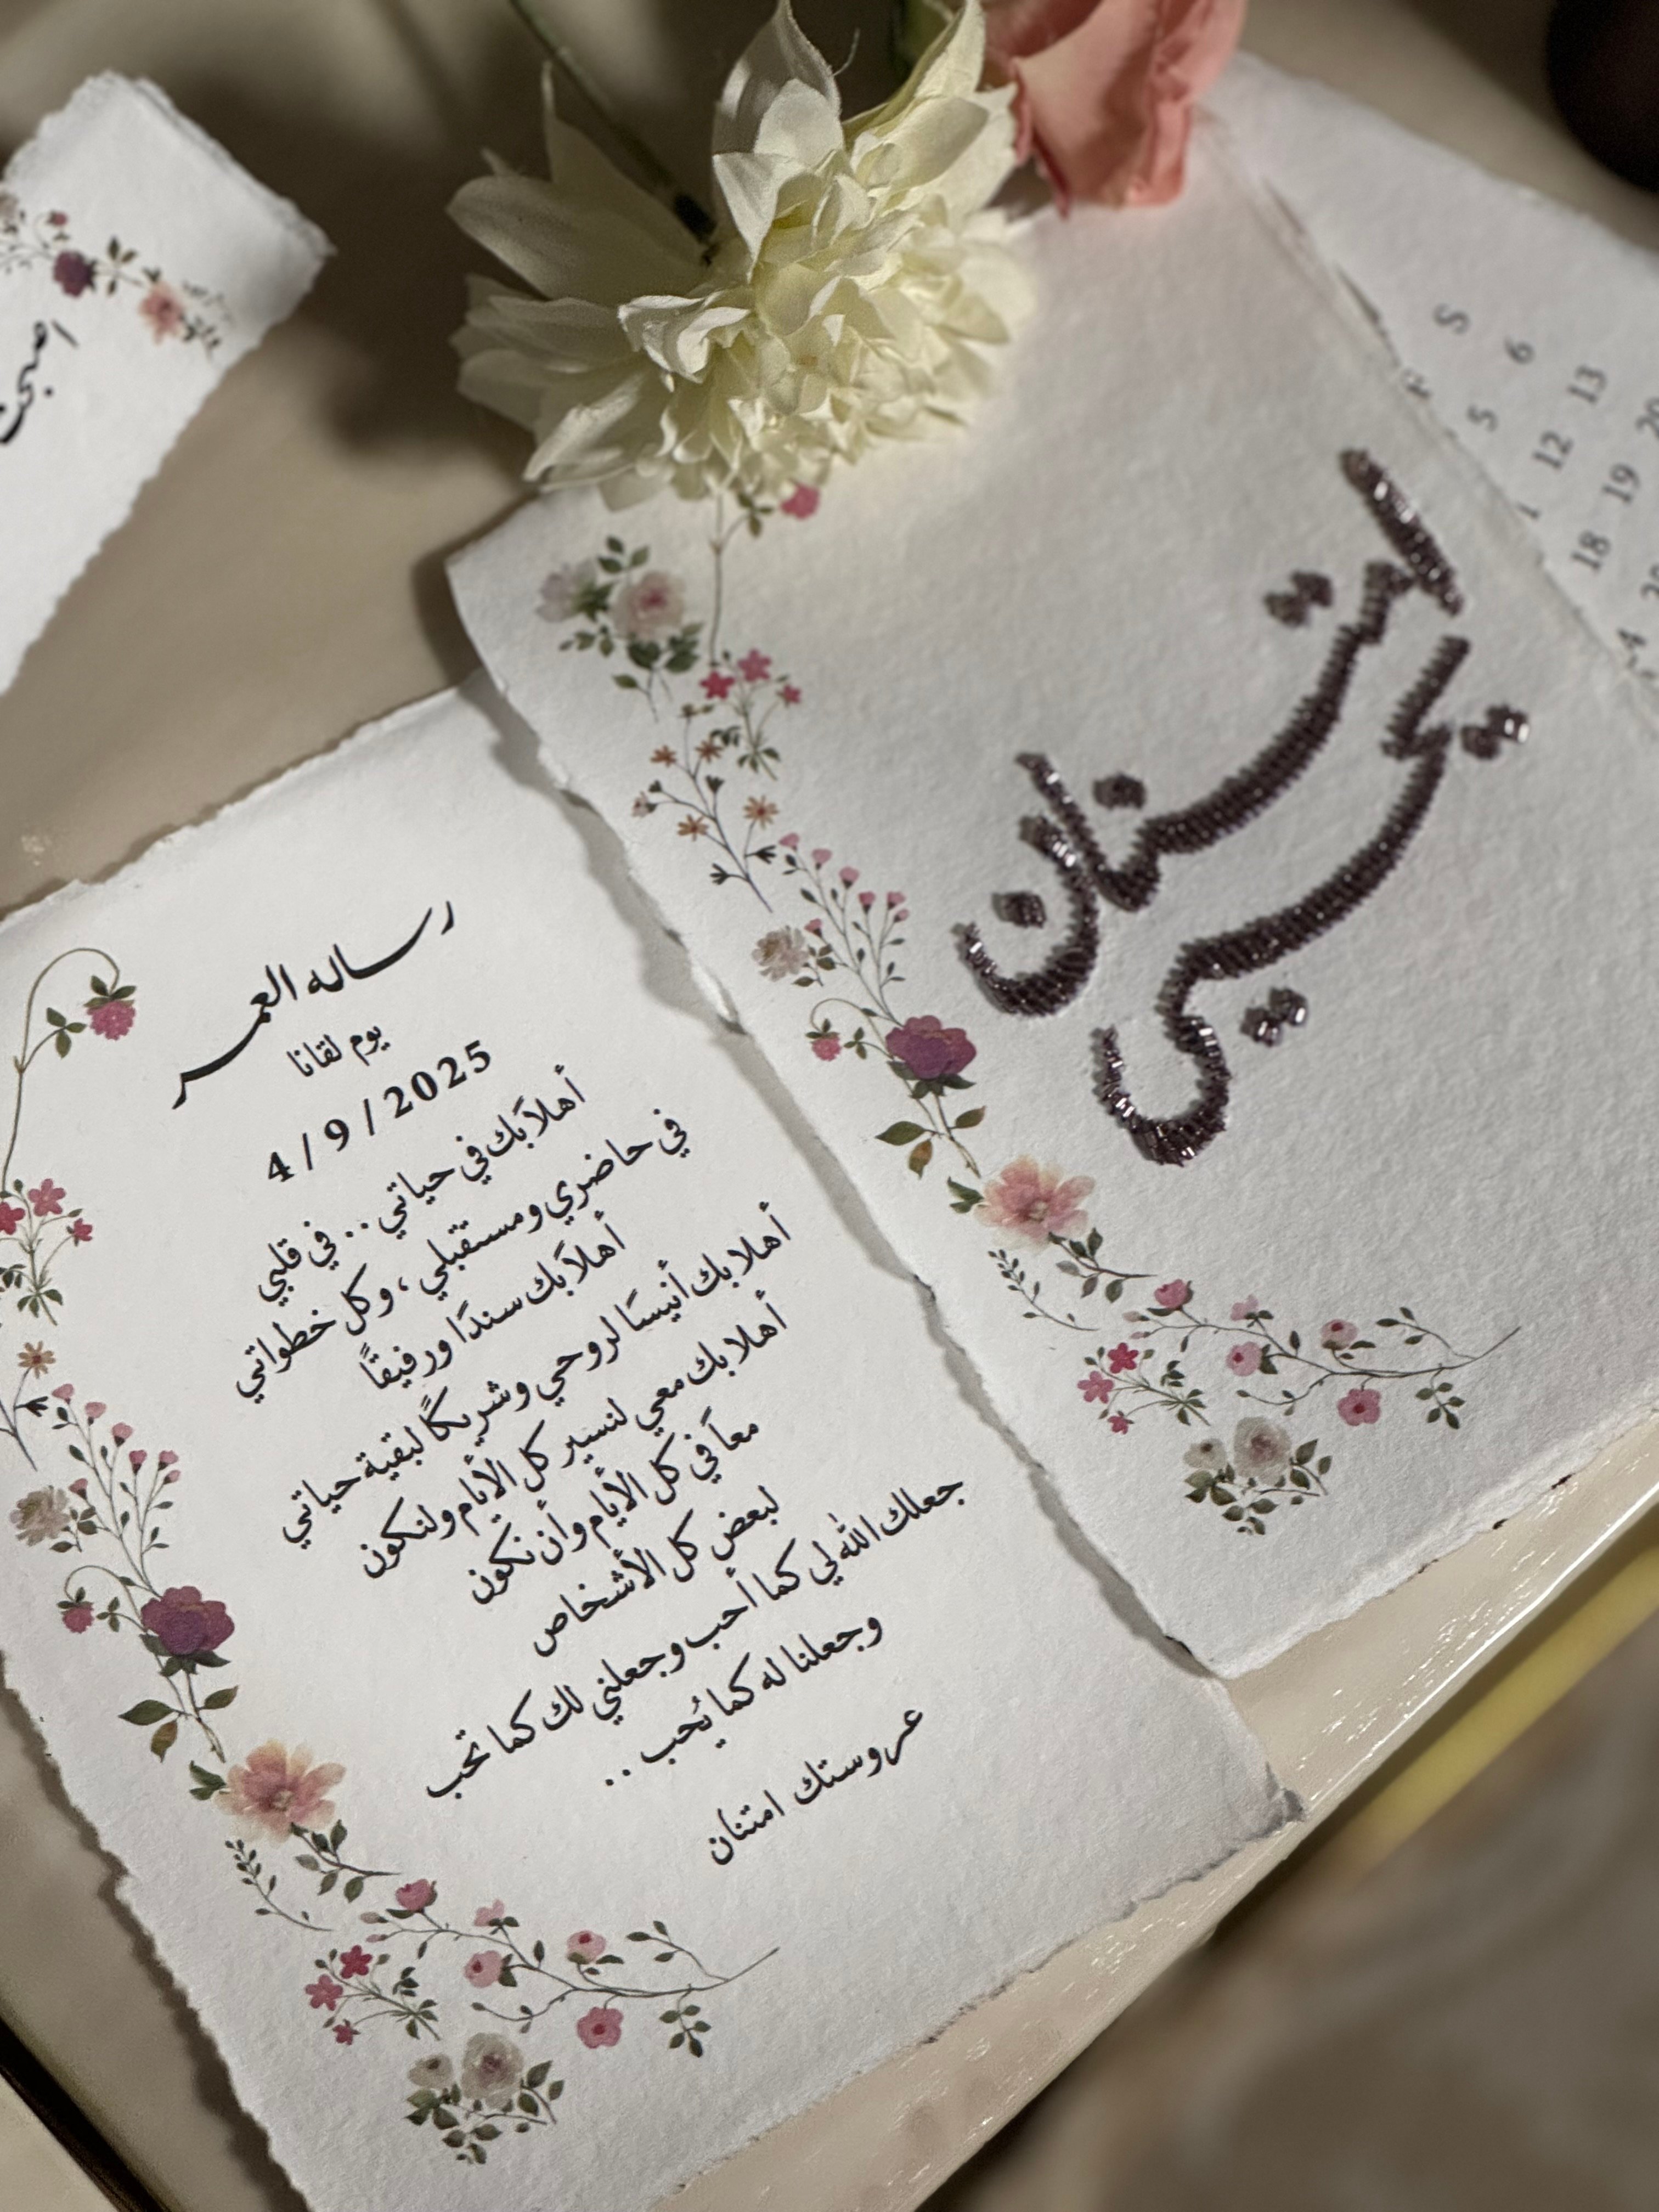 رساله العمر
يوم لقانا
4/9/2025
أهلاً بك في حياتي .. في قلبي
في حاضري ومستقبلي، وكل خطواتي
أهلاً بك سندًا ورفيقًا
أهلا بك أنيسًا لروحي وشريكًا لبقية حياتي
أهلا بك معي لنسير كل الأيام ولنكون
معاً في كل الأيام وأن نكون
لبعض كل الأشخاص
جعلك الله لي كما أحب وجعلني لك كما تحب
وجعلنا له كما يُحب ..
عروستك امتنان
امتنان
يحيى
اصبحت
S
5 6
12 13
18 19 20